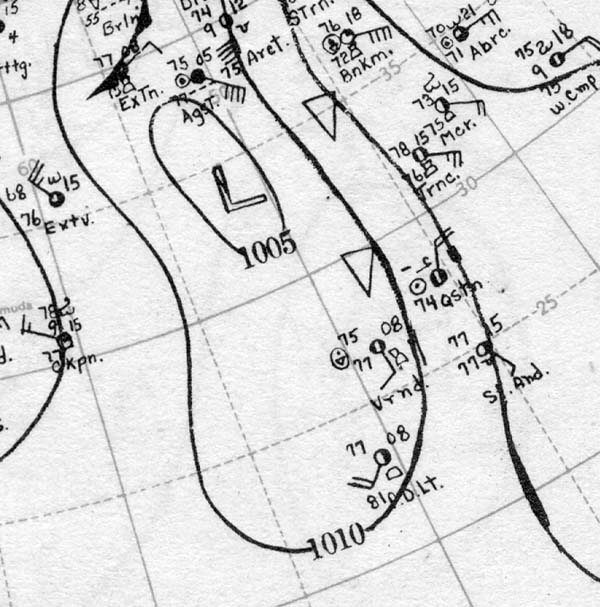 15
4
55
Brln.
74
12
9
STrn.
76
18
72
Bnkm.
70
21
71
Abrc.
75
18
9
75
W.Cmp
77
08
ExTn.
75
05
Agst.
75
Arct.
35
73
15
75
Mcr.
78
15
76
Trnc.
30
60
68
15
76
Extv.
L
1005
74
Qstn.
25
muda
78
9
15
77
Jkpn.
75
08
77
Vrnd.
77
15
77
And.
77
08
81
D.Lt.
1010